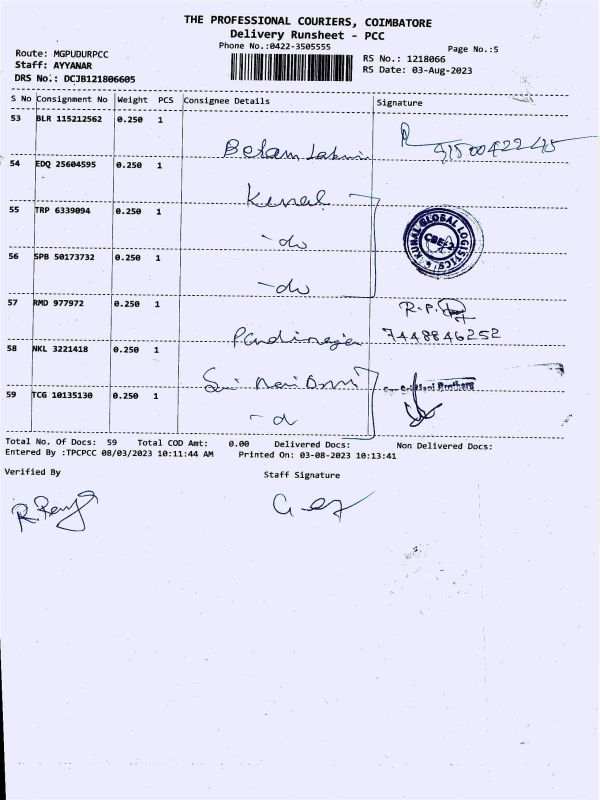 THE PROFESSIONAL COURIERS, COIMBATORE
Delivery Runsheet - PCC
Phone No.:0422-3505555
Page No.:5
Route: MGPUDURPCC
Staff: AYYANAR
DRS No.: DCJB121806605
RS No.: 1218066
RS Date: 03-Aug-2023
S No Consignment No Weight PCS Consignee Details Signature
53 BLR 115212562 0.250 1
54 EDQ 25604595 0.250 1
55 TRP 6339094 0.250 1
- do
KUNAL GLOBAL LOGISTICS
CBE
56 SPB 50173732 0.250 1
- do
57 RMD 977972 0.250 1
R.P.
7448846252
58 NKL 3221418 0.250 1
Brothers
59 TCG 10135130 0.250 1
Total No. Of Docs: 59 Total COD Amt: 0.00 Delivered Docs: Non Delivered Docs:
Entered By :TPCPCC 08/03/2023 10:11:44 AM Printed On: 03-08-2023 10:13:41
Verified By Staff Signature